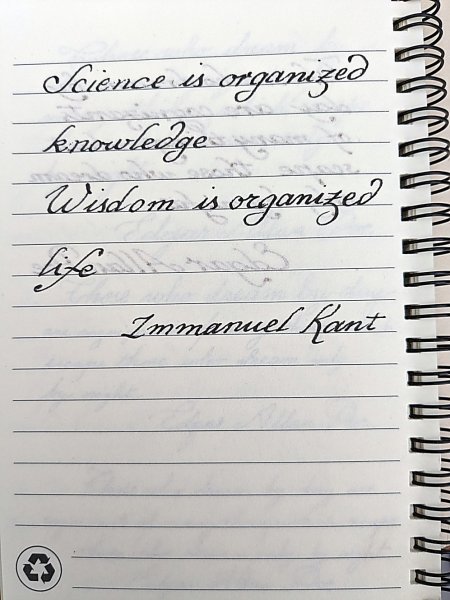 Science is organized
knowledge
Wisdom is organized
life
Immanuel Kant